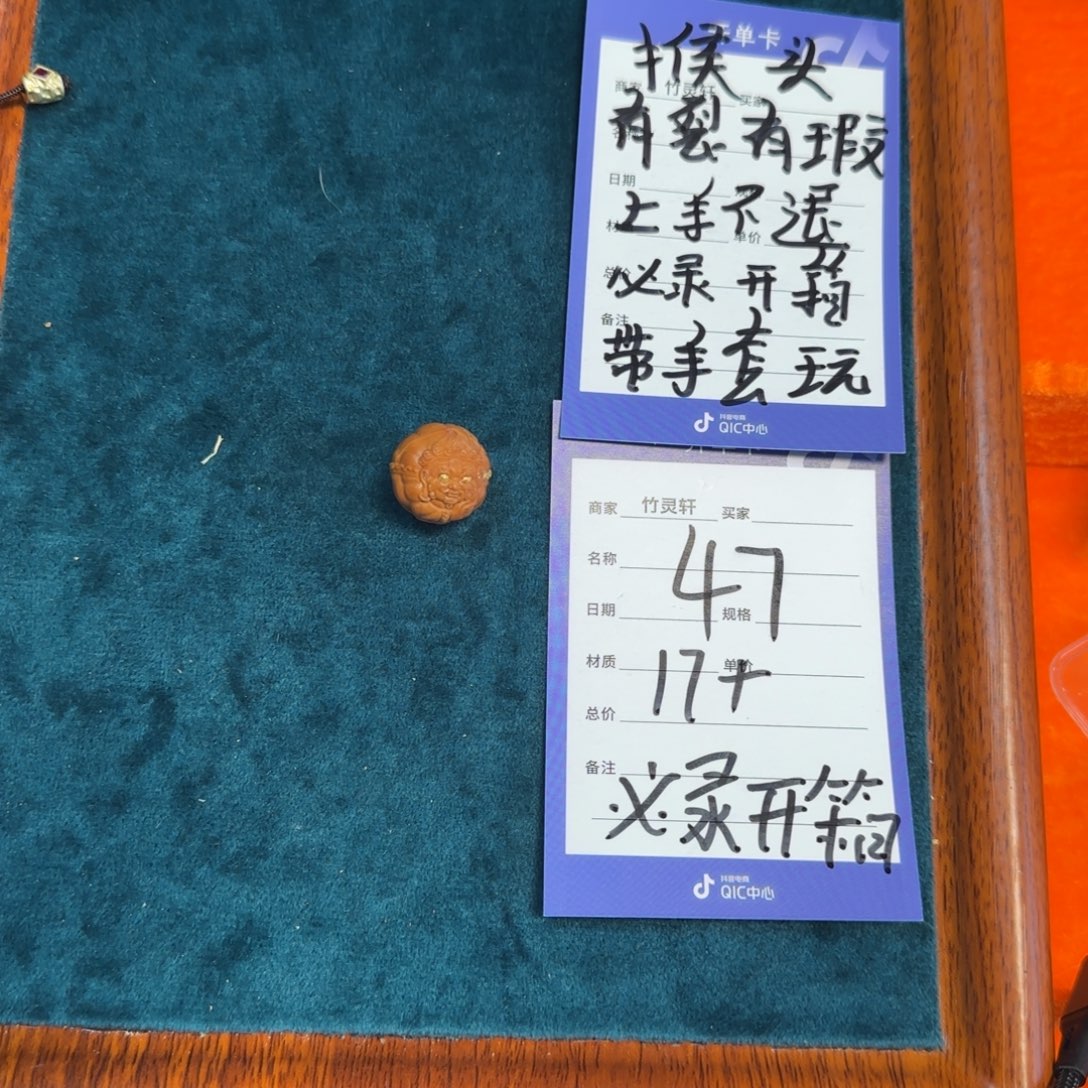 单卡
猴头
商家 竹灵轩 买家
有裂有瑕
日期
上手不退
单价
必录开箱
备注
带手套玩
抖音电商
QIC中心
商家 竹灵轩 买家
名称
47
日期 规格
材质 17+ 单价
总价
备注
必录开箱
抖音电商
QIC中心